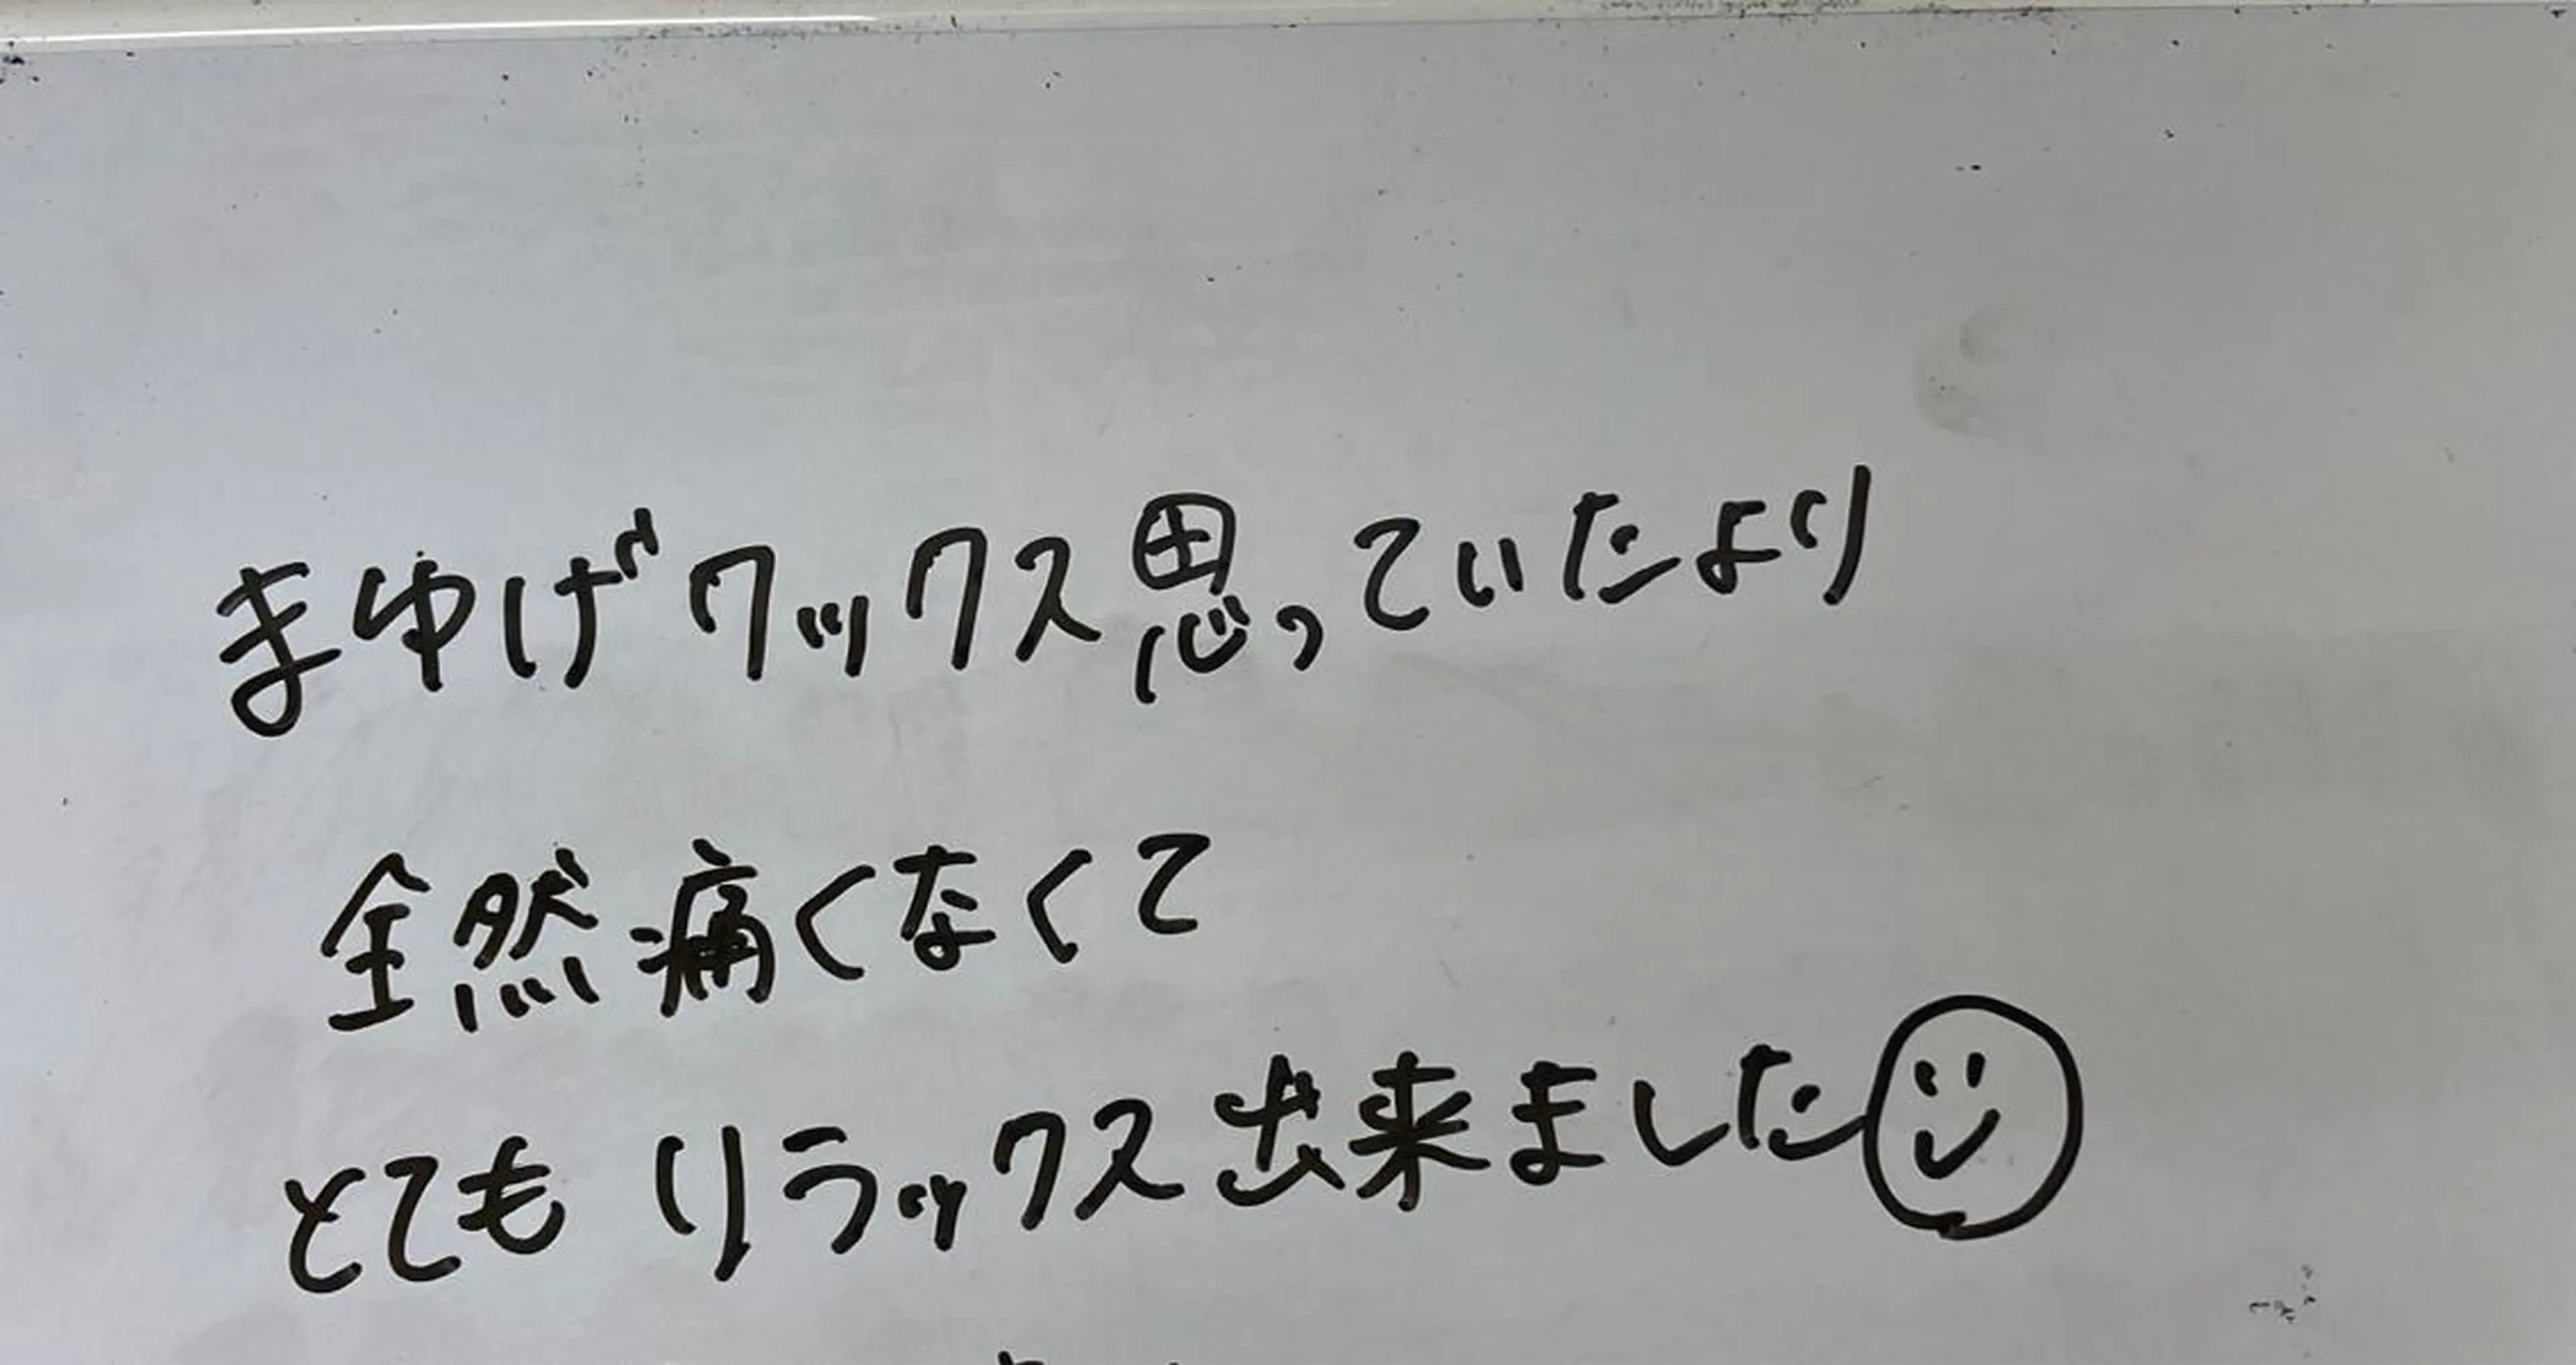 まゆげワックス思っていたより
全然痛くなくて
とてもリラックス出来ました☺